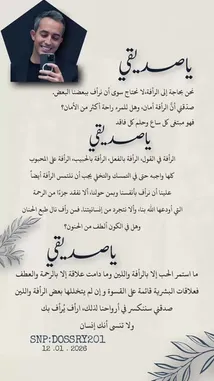 ياصديقي
نحن بحاجة إلى الرأفة،لا نحتاج سوى أن نرأف ببعضنا البعض.
صدّقني أنَّ الرأفة أمان، وهل للمرء راحة أكثر من الأمان؟
فهو مبتغى كل ساع وحلم كل فاقد
ياصديقي
الرأفة في القول، الرأفة بالفعل، الرأفة بالحبيب، الرأفة على المحبوب
كما واجبه حتى في التمسك والتخلي يجب أن نلتمس الرأفة أيضاً
علينا أن نرأف بأنفسنا وبمن حولنا، ألا نفقد جزءًا من الرحمة
التي أودعها الله بنا، وألا نتجرد من إنسانيتنا، فمن رأف نال طبع الحنان
وهل في الكون ألطف من الحنون؟
ياصديقي
ما استمر الحب إلا بالرأفة واللين وما دامت علاقة إلا بالرحمة والعطف
فعلاقات البشرية قائمة على القسوة و إن لم يتخللها بعض الرأفة واللين
صدقني ستنكسر في أرواحنا لذلك، ارأف يُرأف بك
ولا تنسى أنك إنسان
SNP:DOSSRY201
12 .01 . 2026